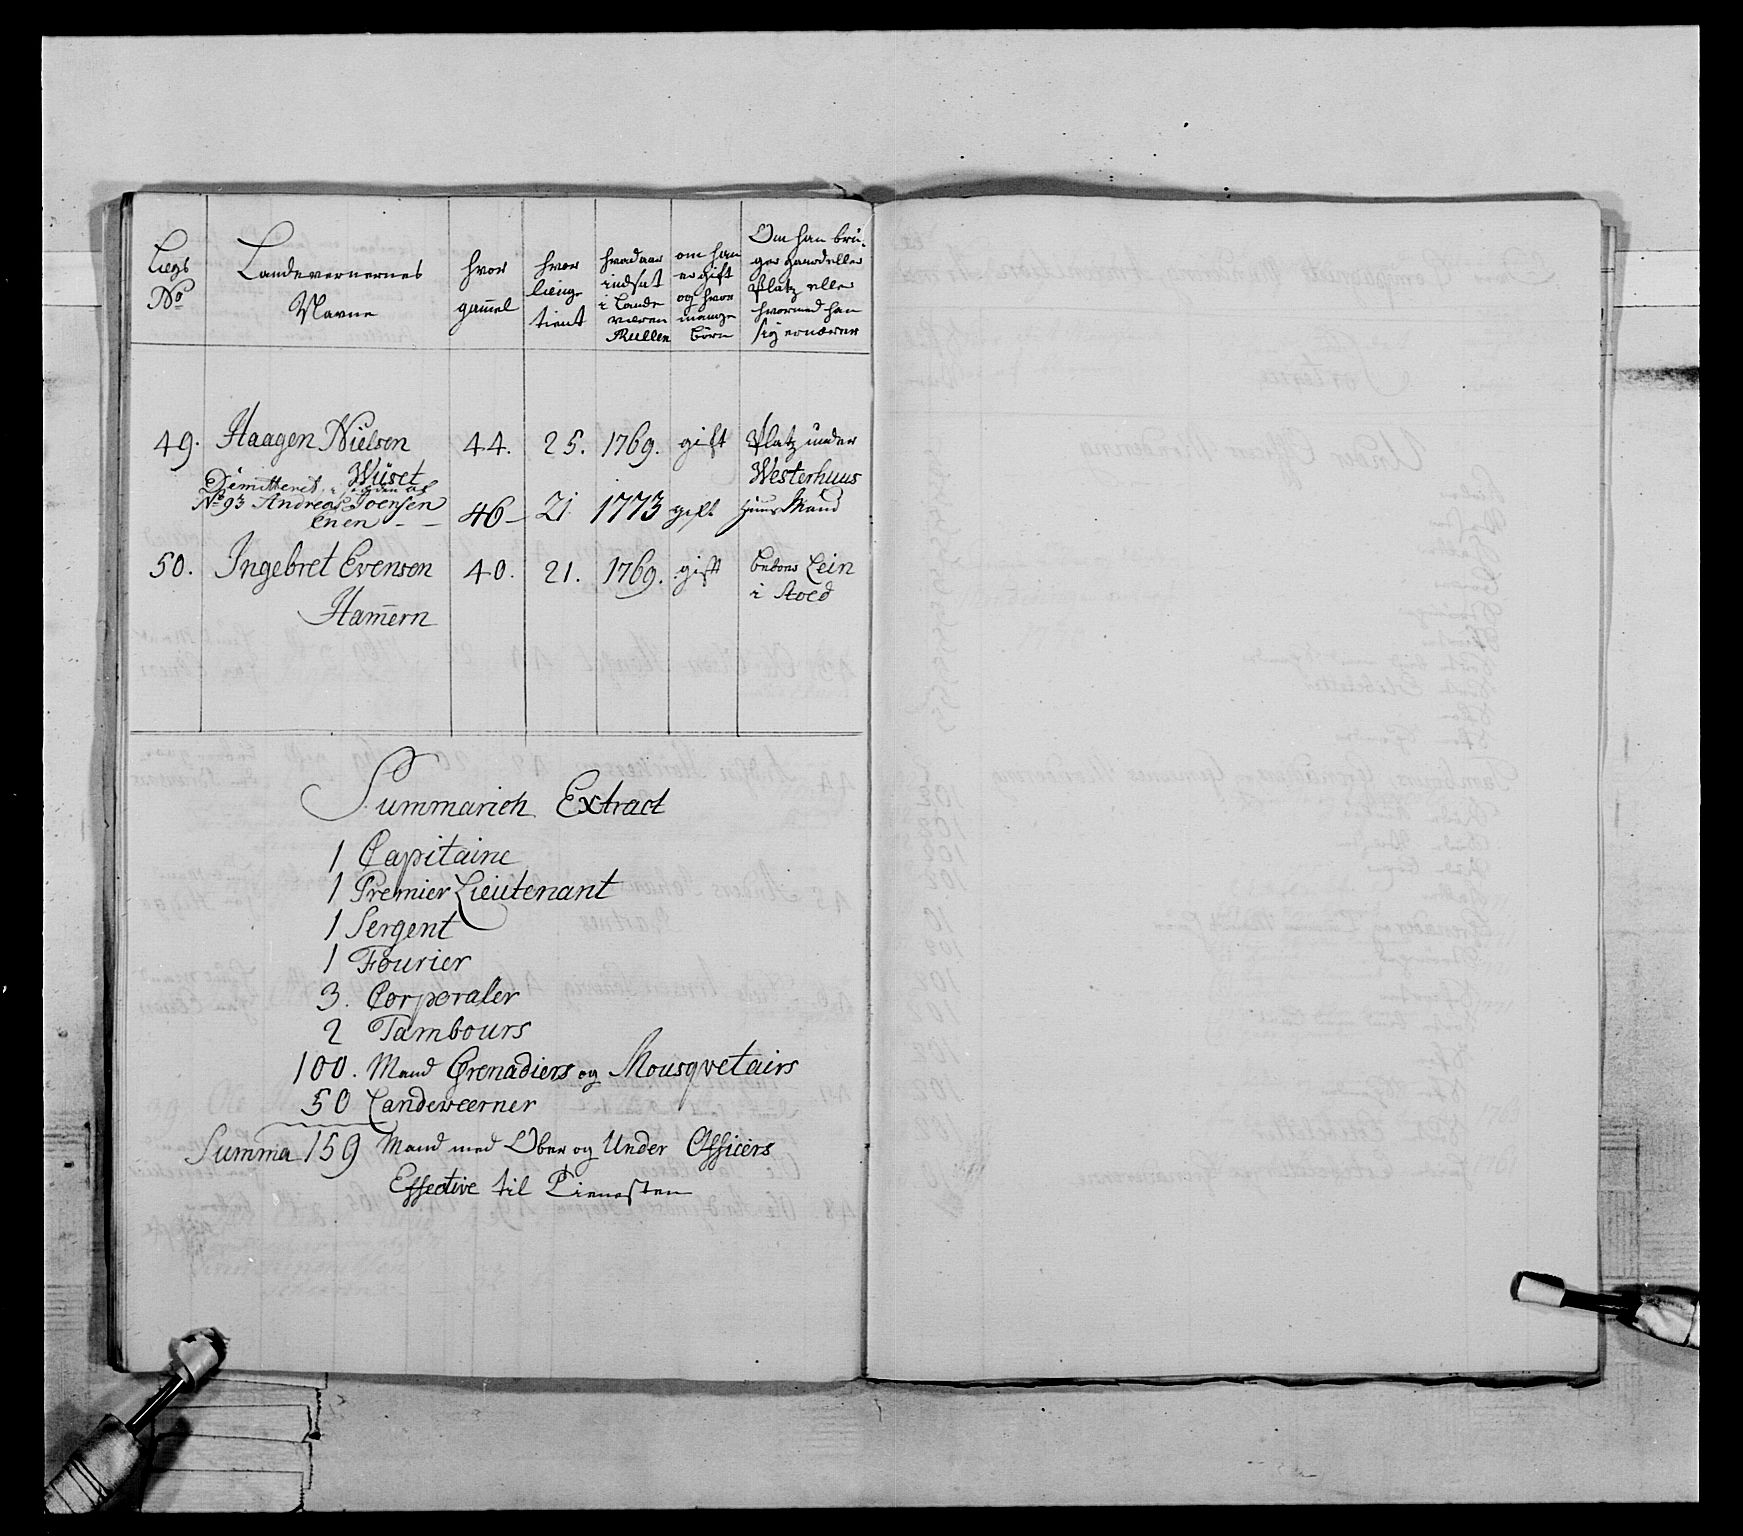 Liegs No
Landevernernes Navne
hvor gam̅el
hvor længe tient
hvad aar indsat i Lande værn Rullen
om han er gift og hvor mange börn
Om han bruger gaard eller Platz eller hvormed han sig ernærer
49. Haagen Nielsen 44. 25. 1769. gift Platz under
Wüset Westerhuus
Dimitteret,
No 93 Andreas Joensen
Enen - - 46 - 21. 1773 gift Huus Mand
50. Ingebret Evensen 40. 21. 1769. gift beboer Lein
Ham̅ern i Stoed
Summarich Extract
1 Capitaine
1 Premier Lieutenant
1 Sergent
1 Fourier
3. Corporaler
2 Tambours
100. Mand Grenadiers og Mousqvetairs
50 Landeværner
Summa 159 Mand med Ober og Under Officers
Effective til Tienesten